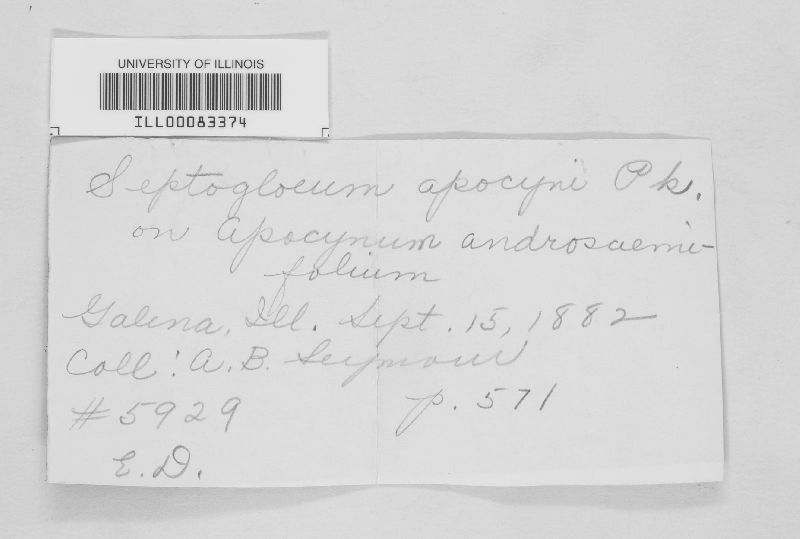 UNIVERSITY OF ILLINOIS
ILL00083374
Septogloeum apocyni Pk.
on Apocynum androsaemi-
folium
Galena, Ill. Sept. 15, 1882
Coll: A. B. Seymour
#5929 p. 571
E. D.